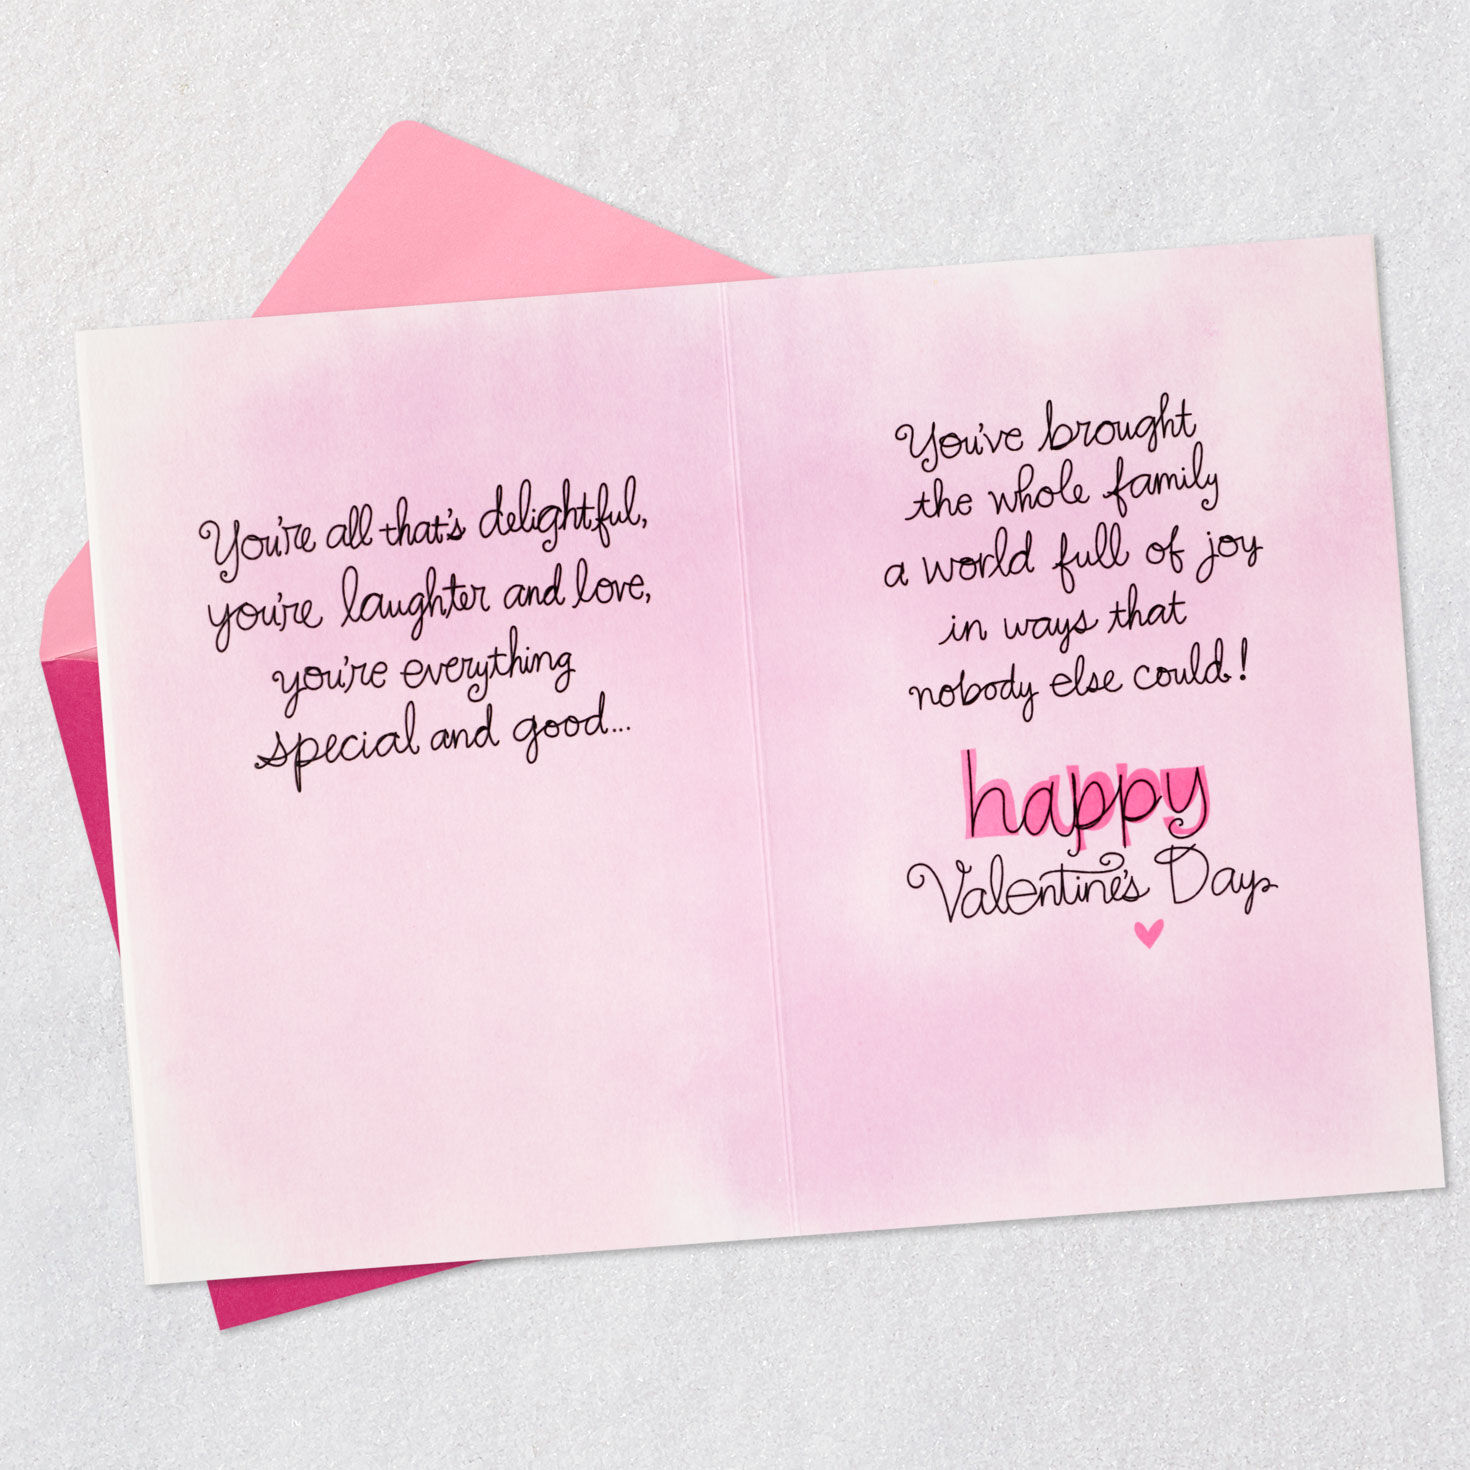 You're all that's delightful,
you're laughter and love,
you're everything
special and good...
You've brought
the whole family
a world full of joy
in ways that
nobody else could!
happy
Valentine's Day